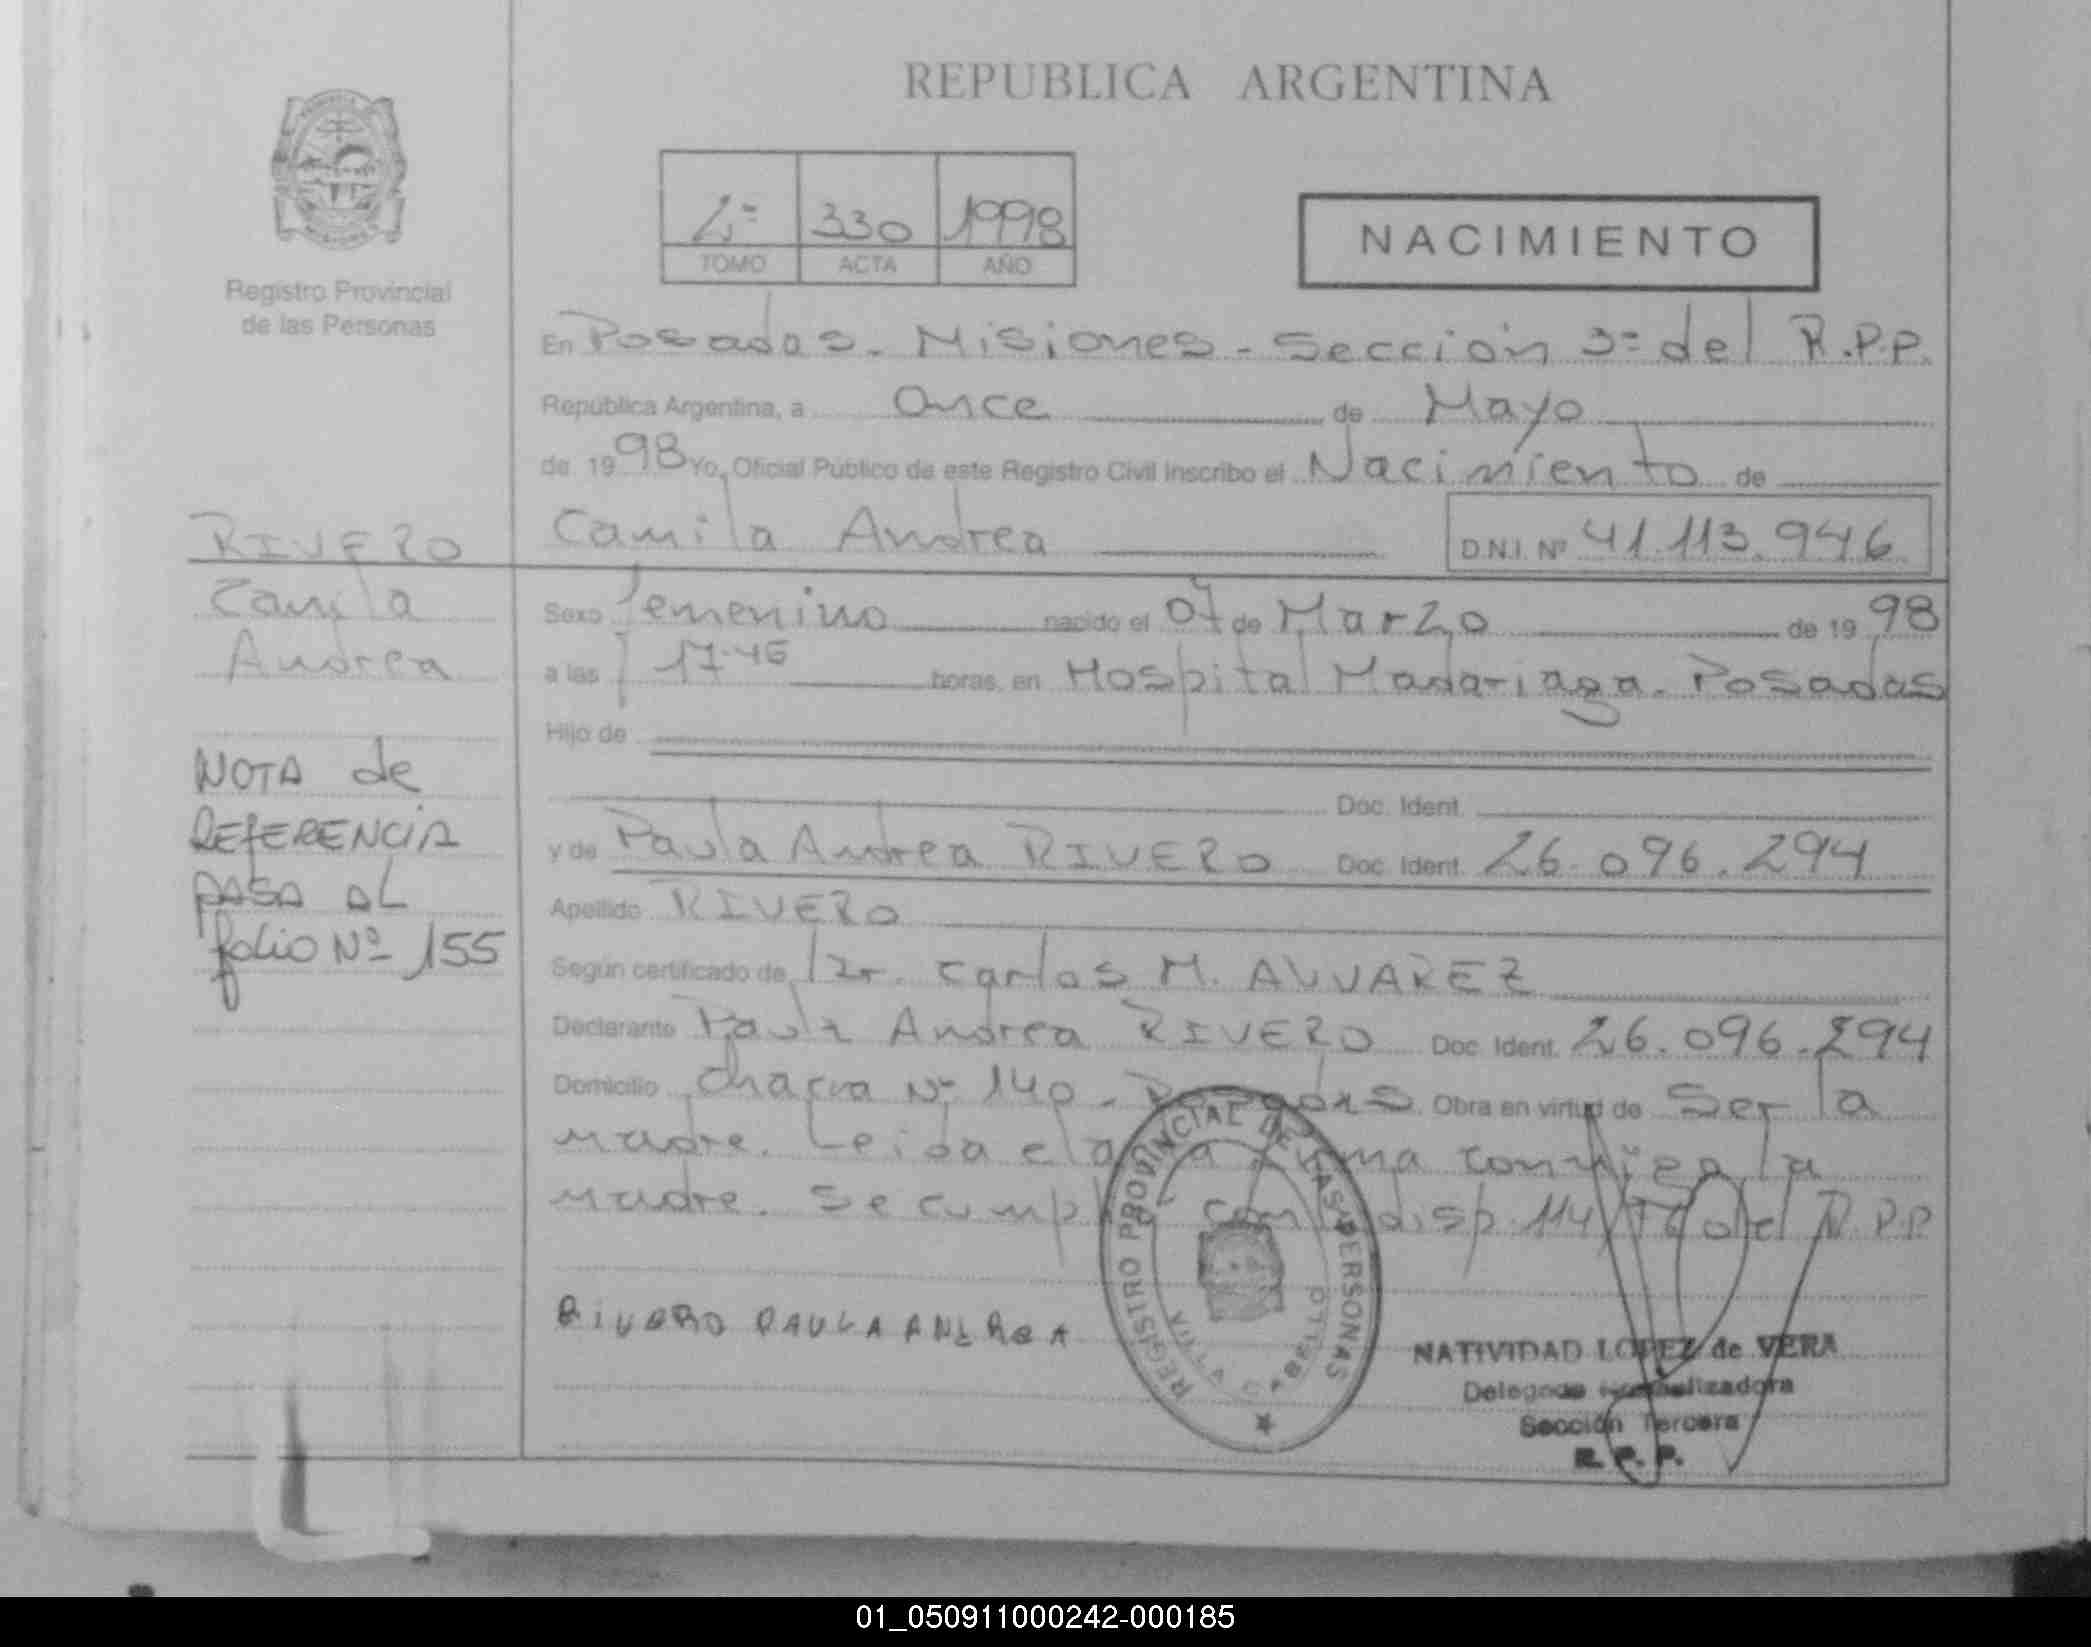 REPUBLICA ARGENTINA
2º 330 1998
TOMO ACTA AÑO
NACIMIENTO
Registro Provincial
de las Personas
En Posadas - Misiones - Sección 3ª del R.P.P.
República Argentina, a Once de Mayo
de 1998 Yo, Oficial Público de este Registro Civil inscribo el Nacimiento de
Camila Andrea D.N.I. Nº 41.113.946
Sexo femenino nacido el 07 de Marzo de 1998
a las 17.45 horas, en Hospital Madariaga. Posadas
Hijo de
Doc. Ident.
y de Paula Andrea RIVERO Doc. Ident. 26.096.294
Apellido RIVERO
Según certificado de Dr. Carlos M. ALVAREZ
Declarante Paula Andrea RIVERO Doc. Ident. 26.096.294
Domicilio Chacra Nº 140 - Posadas Obra en virtud de Ser la
madre. Leida el acta firma conmigo la
madre. Se cumple con disp. 114/ del R.P.P.
RIVERO PAULA ANDREA
REGISTRO PROVINCIAL DE LAS PERSONAS
VILLA CABELLO
NATIVIDAD LOPEZ de VERA
Delegada Normalizadora
Sección Tercera
R.P.P.
RIVERO
Camila
Andrea
NOTA de
REFERENCIA
PASA AL
folio Nº 155
01_050911000242-000185